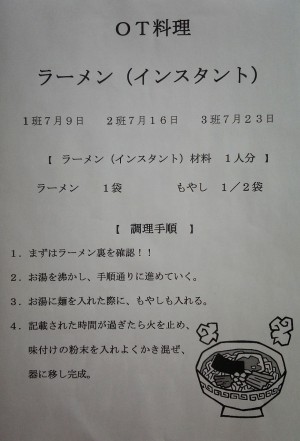 ＯＴ料理
ラーメン（インスタント）
１班７月９日　２班７月１６日　３班７月２３日
【　ラーメン（インスタント）材料　１人分　】
ラーメン　１袋　もやし　１／２袋
【　調理手順　】
１．まずはラーメン裏を確認！！
２．お湯を沸かし、手順通りに進めていく。
３．お湯に麺を入れた際に、もやしも入れる。
４．記載された時間が過ぎたら火を止め、
味付けの粉末を入れよくかき混ぜ、
器に移し完成。